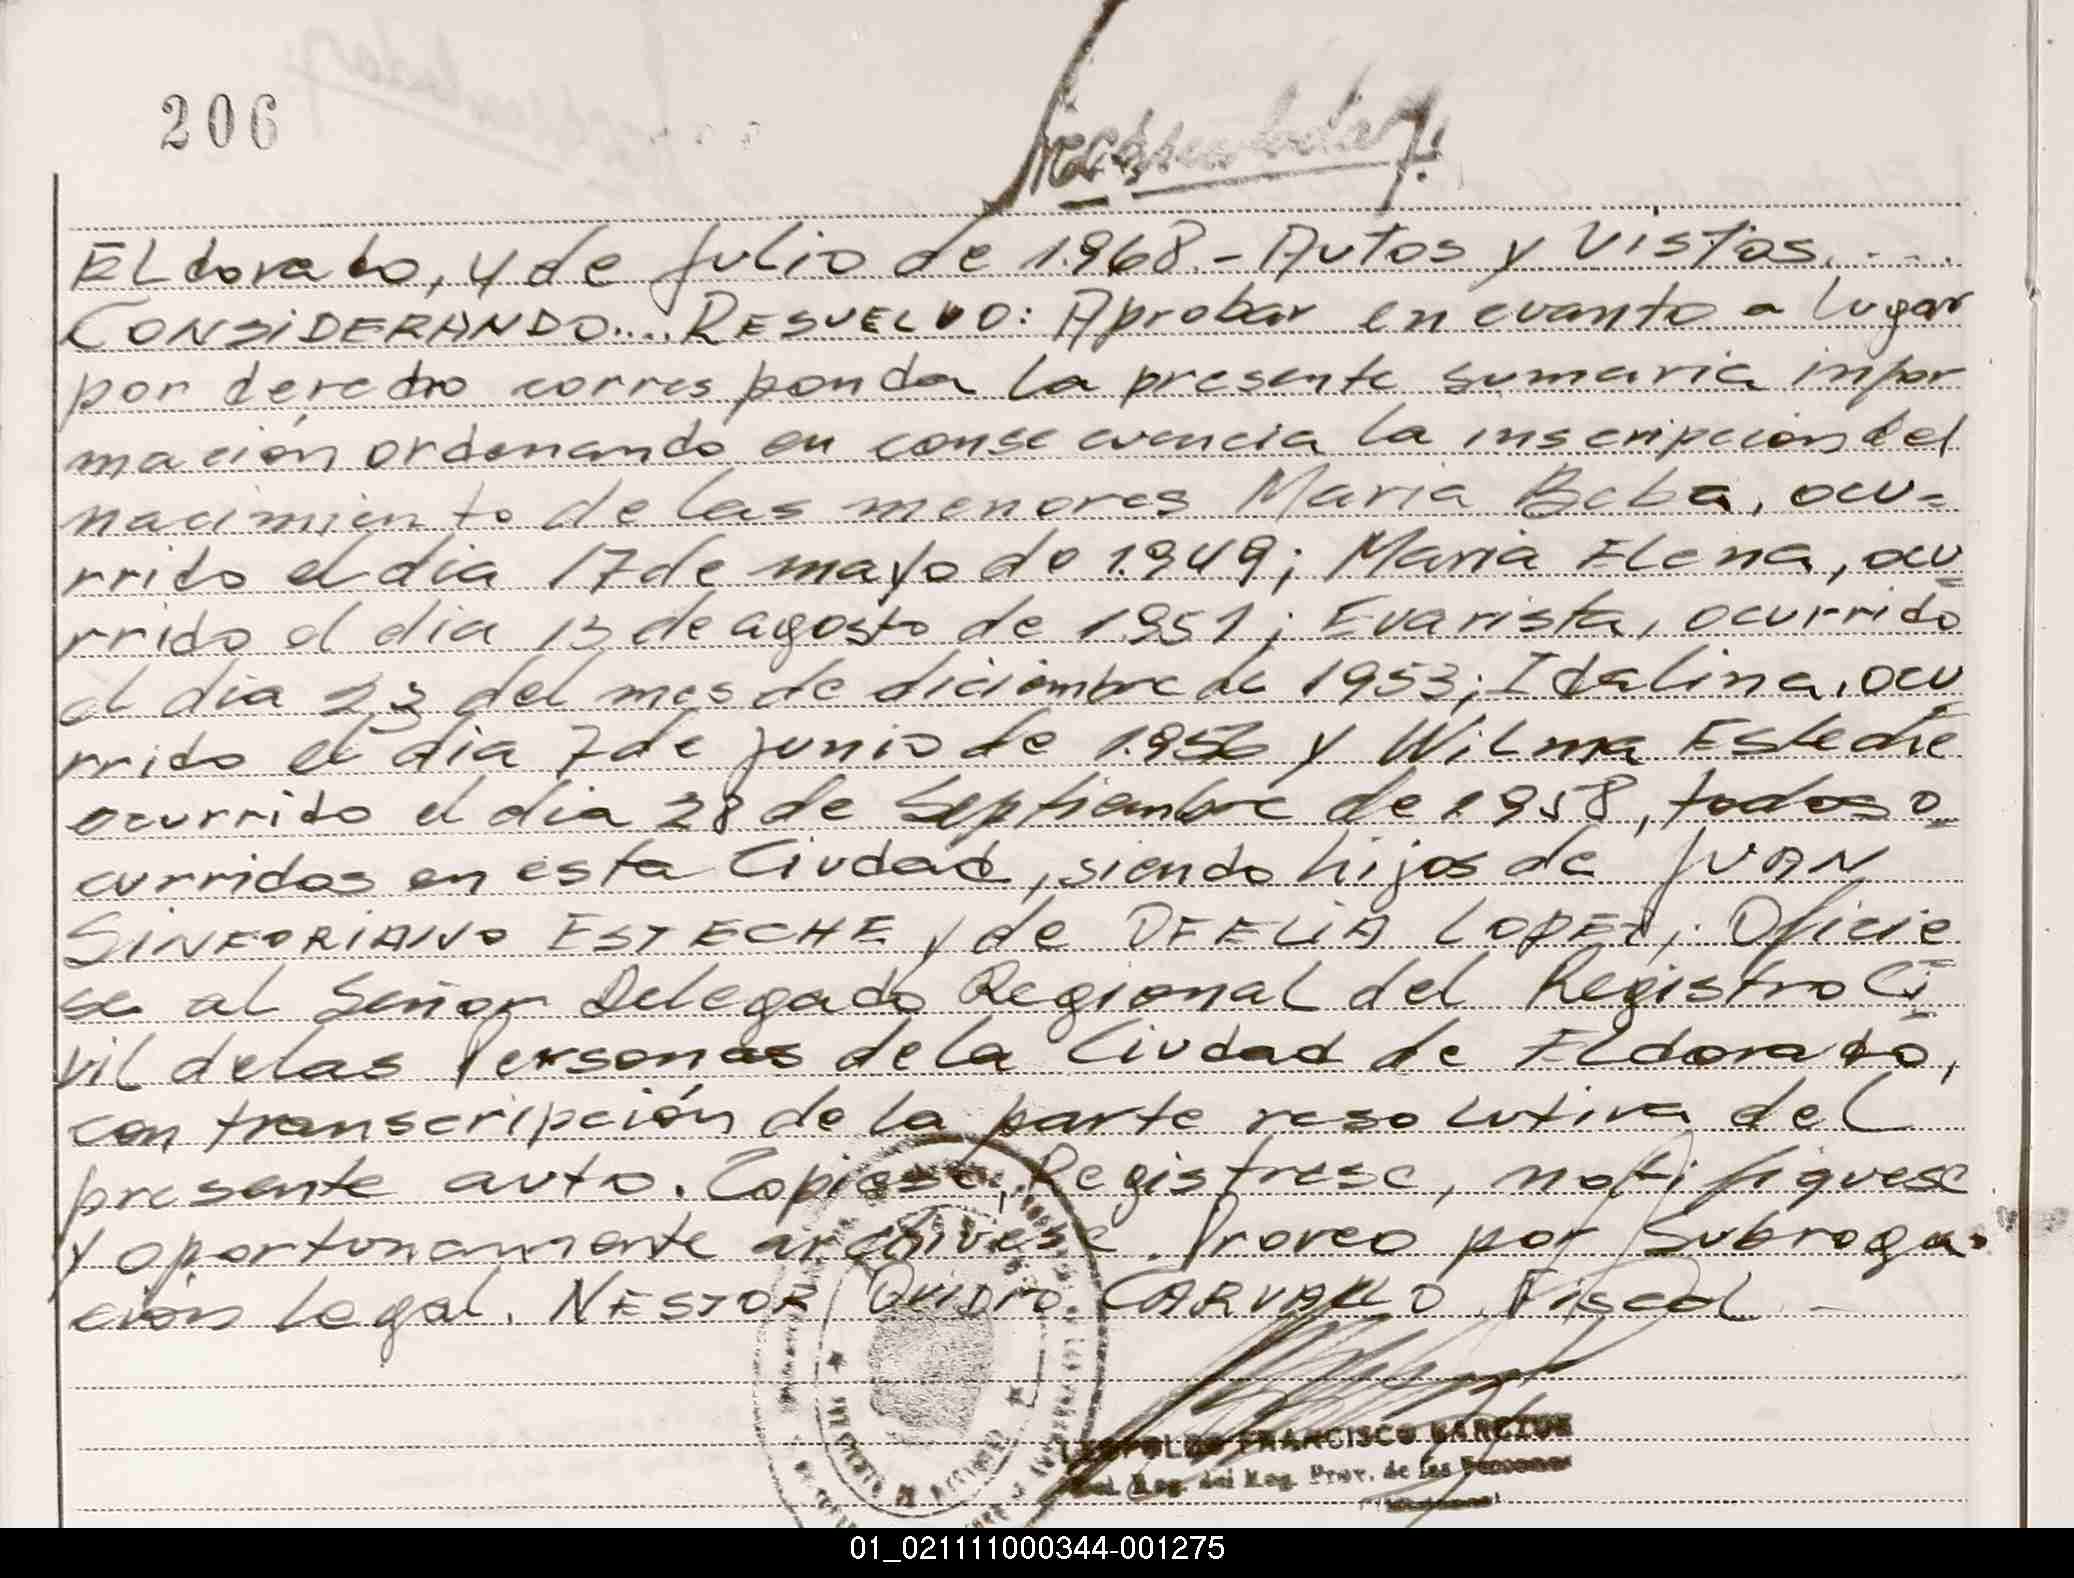 206
Eldorado, 4 de Julio de 1.968.- Autos y Vistos....
CONSIDERANDO.... RESUELVO: Aprobar en cuanto a lugar
por derecho corresponda la presente sumaria infor
mación ordenando en consecuencia la inscripción del
nacimiento de las menores Maria Beba, ocu-
rrido el dia 17 de mayo de 1.949; Maria Elena, ocu
rrido el dia 13 de agosto de 1951; Evarista, ocurrido
el dia 23 del mes de diciembre de 1953; Idalina, ocu
rrido el dia 7 de junio de 1.956 y Wilma Esteche
ocurrido el dia 28 de Septiembre de 1.958, todos o
curridos en esta Ciudad, siendo hijos de JUAN
SINFORIANO ESTECHE y de OFELIA LOPEZ; Oficie
se al Señor Delegado Regional del Registro Ci
vil de las Personas de la Ciudad de Eldorado,
con transcripción de la parte resolutiva del
presente auto. Copiese, Registrese, notifiquese
y oportunamente archivese. Proveo por Subroga-
ción legal. NESTOR OVIDIO CARVALLO Fiscal -
LEOPOLDO FRANCISCO
Del. Reg. del Reg. Prov. de las Personas
01_021111000344-001275